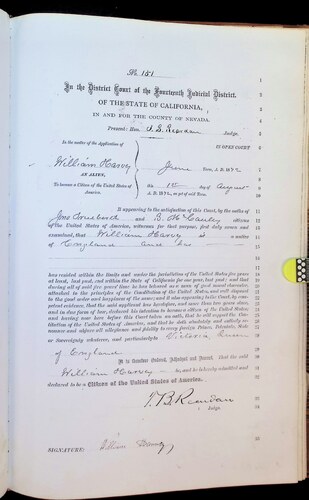 No. 151
In the District Court of the Fourteenth Judicial District,
OF THE STATE OF CALIFORNIA,
IN AND FOR THE COUNTY OF NEVADA.
Present: Hon. T. B. Reardan Judge.
In the matter of the Application of
William Harvy
AN ALIEN,
To become a Citizen of the United States of
America.
IN OPEN COURT
June Term, A. D. 1872
this 1st day of August
A. D. 1872, as yet of said Term.
It appearing to the satisfaction of this Court, by the oaths of
and B. citizens
of the United States of America, witnesses for that purpose, first duly sworn and
examined, that William Harvy is a native
of England and has
has resided within the limits and under the jurisdiction of the United States five years
at least, last past, and within the State of California for one year, last past; and that
during all of said five years' time he has behaved as a man of good moral character,
attached to the principles of the Constitution of the United States, and well disposed
to the good order and happiness of the same; and it also appearing to the Court, by competent
evidence, that the said applicant has heretofore, and more than two years since,
and in due form of law, declared his intention to become a citizen of the United States;
and having now here before this Court taken an oath, that he will support the Constitution
of the United States of America, and that he doth absolutely and entirely renounce
and abjure all allegiance and fidelity to every foreign Prince, Potentate, State
or Sovereignty whatever, and particularly to Victoria Queen
of England
It is therefore Ordered, Adjudged and Decreed, That the said
William Harvy be, and he is hereby admitted and
declared to be a Citizen of the United States of America.
T. B. Reardan
Judge.
SIGNATURE: William Harvy